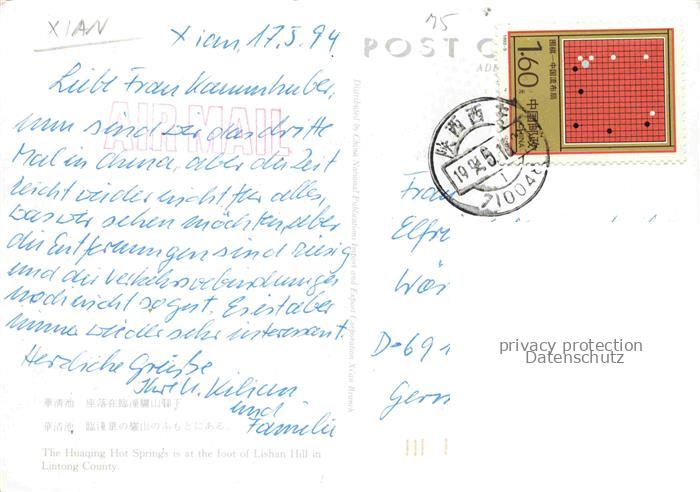 XIAN
Xian, 17.5.94
75
POST C
Liebe Frau Kammhuber,
AIR MAIL
nun sind wir das dritte
Mal in China, aber die Zeit
reicht wieder nicht für alles,
was wir sehen möchten, aber
die Entfernungen sind riesig
und die Verkehrsverbindungen
noch nicht so gut. Es ist aber
immer wieder sehr interessant.
Herzliche Grüße
Ihre U. Kilian
und
Familie
華清池 座落在臨潼驪山脚下
華清池 臨潼県の驪山のふもとにある。
The Huaqing Hot Springs is at the foot of Lishan Hill in
Lintong County.
Distributed by China National Publications Import and Export Corporation Xi'an Branch
1.60元
围棋—中国流布局
中国邮政
CHINA
陕西西
710042
Frau
Elfr
Wör
D-691
Germ
privacy protection
Datenschutz